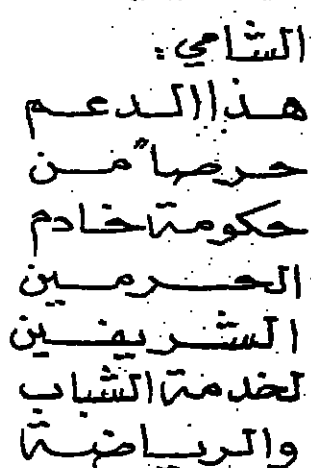 الشامي:
هذا الدعم
حرصاً من
حكومة خادم
الحرمين
الشريفين
لخدمة الشباب
والرياضة